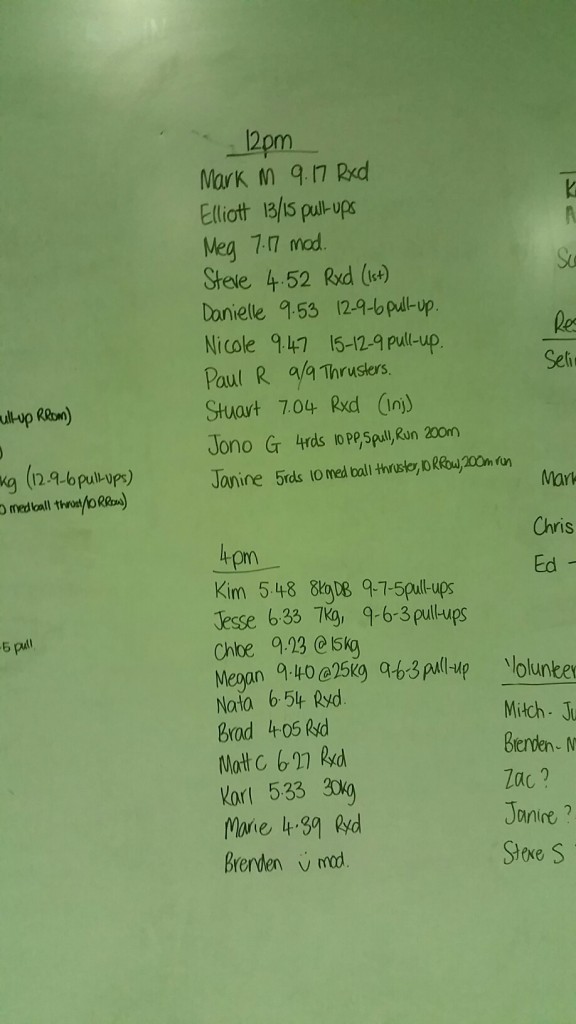 12pm
Mark M 9.17 Rxd
Elliott 13/15 pull-ups
Meg 7.17 mod.
Steve 4.52 Rxd (1st)
Danielle 9.53 12-9-6 pull-up.
Nicole 9.47 15-12-9 pull-up.
Paul R 9/9 Thrusters.
Stuart 7.04 Rxd (Inj)
Jono G 4rds 10 PP, 5 pull, Run 200m
Janine 5rds 10 med ball thruster, 10 R Row, 200m run
4pm
Kim 5.48 8kg DB 9-7-5 pull-ups
Jesse 6.33 7kg, 9-6-3 pull-ups
Chloe 9.23 @ 15kg
Megan 9.40 @ 25kg 9-6-3 pull-up
Nata 6.54 Rxd.
Brad 4.05 Rxd
Matt C 6.27 Rxd
Karl 5.33 30kg
Marie 4.39 Rxd
Brenden ü mod.
ull-up R Row)
)
kg (12-9-6 pull-ups)
0 med ball thrust/10 R Row)
5 pull
Res
Seli
Mark
Chris
Ed -
Volunteer
Mitch - Ju
Brenden - M
Zac ?
Janine ?
Steve S